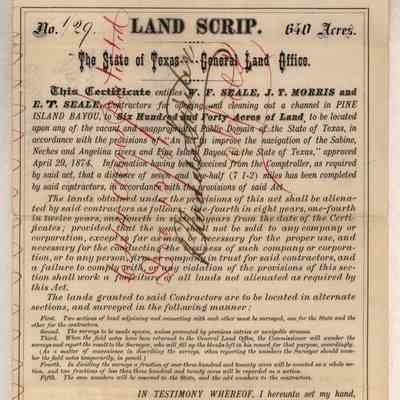 No. 129. LAND SCRIP. 640 Acres.
The State of Texas General Land Office.
This Certificate entitles W. F. SEALE, J. T. MORRIS and
E. T. SEALE, Contractors for opening and cleaning out a channel in PINE
ISLAND BAYOU, to Six Hundred and Forty Acres of Land, to be located
upon any of the vacant and unappropriated Public Domain of the State of Texas, in
accordance with the provisions of an Act to improve the navigation of the Sabine,
Neches and Angelina rivers and Pine Island Bayou, in the State of Texas," approved
April 29, 1874. Information having been received from the Comptroller, as required
by said act, that a distance of seven and one-half (7 1-2) miles has been completed
by said contractors, in accordance with the provisions of said Act.
The lands obtained under the provisions of this act shall be alien-
ated by said contractors as follows: one-fourth in eight years, one-fourth
in twelve years, one-fourth in sixteen years from the date of the Certi-
ficates; provided that the same shall not be sold to any company or
corporation, except so far as may be necessary for the proper use, and
necessary for the conducting the business of such company or corpora-
tion, or to any person, or company in trust for said contractors, and
a failure to comply with, or any violation of the provisions of this sec-
tion shall work a forfeiture of all lands not alienated as required by
this Act.
The lands granted to said Contractors are to be located in alternate
sections, and surveyed in the following manner:
First. Two sections of land adjoining and connecting with each other must be surveyed, one for the State and the
other for the contractors.
Second. The surveys to be made square, unless prevented by previous entries or navigable streams.
Third. When the field notes have been returned to the General Land Office, the Commissioner will number the
surveys and report the result to the Surveyor, who will fill up the blanks left in his record for that purpose, accordingly.
(As a matter of convenience in describing the surveys, when reporting the numbers the Surveyor should num-
ber the field notes temporarily, in pencil.)
Fourth. In dividing the surveys a fraction of over three hundred and twenty acres will be counted as a whole sec-
tion, and two fractions of less than three hundred and twenty acres will be regarded as a section.
Fifth. The even numbers will be reserved to the State, and the odd numbers to the contractors.
IN TESTIMONY WHEREOF, I hereunto set my hand,